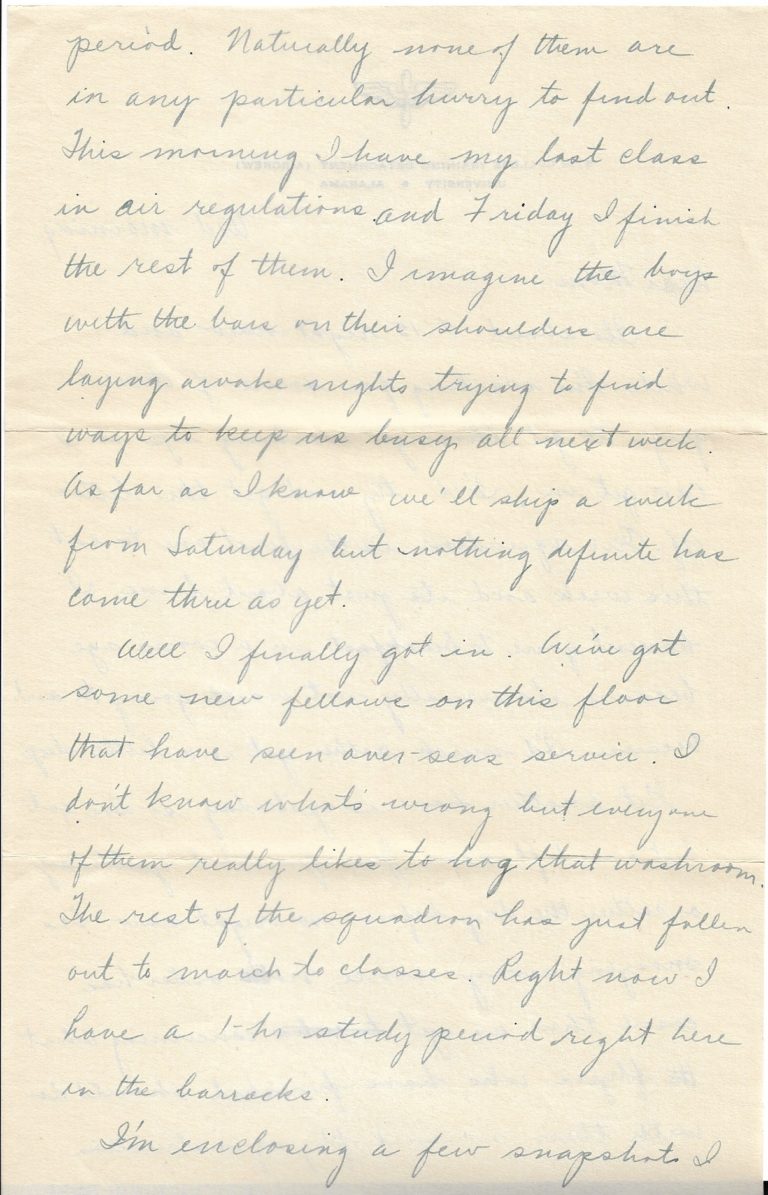 period. Naturally none of them are
in any particular hurry to find out.
This morning I have my last class
in air regulations and Friday I finish
the rest of them. I imagine the boys
with the bars on their shoulders are
laying awake nights trying to find
ways to keep us busy all next week.
As far as I know we'll ship a week
from Saturday but nothing definite has
come thru as yet.
Well I finally got in. We've got
some new fellows on this floor
that have seen over-seas service. I
don't know what's wrong but everyone
of them really likes to hog that washroom.
The rest of the squadron has just fallen
out to march to classes. Right now I
have a 1-hr study period right here
in the barracks.
I'm enclosing a few snapshots I